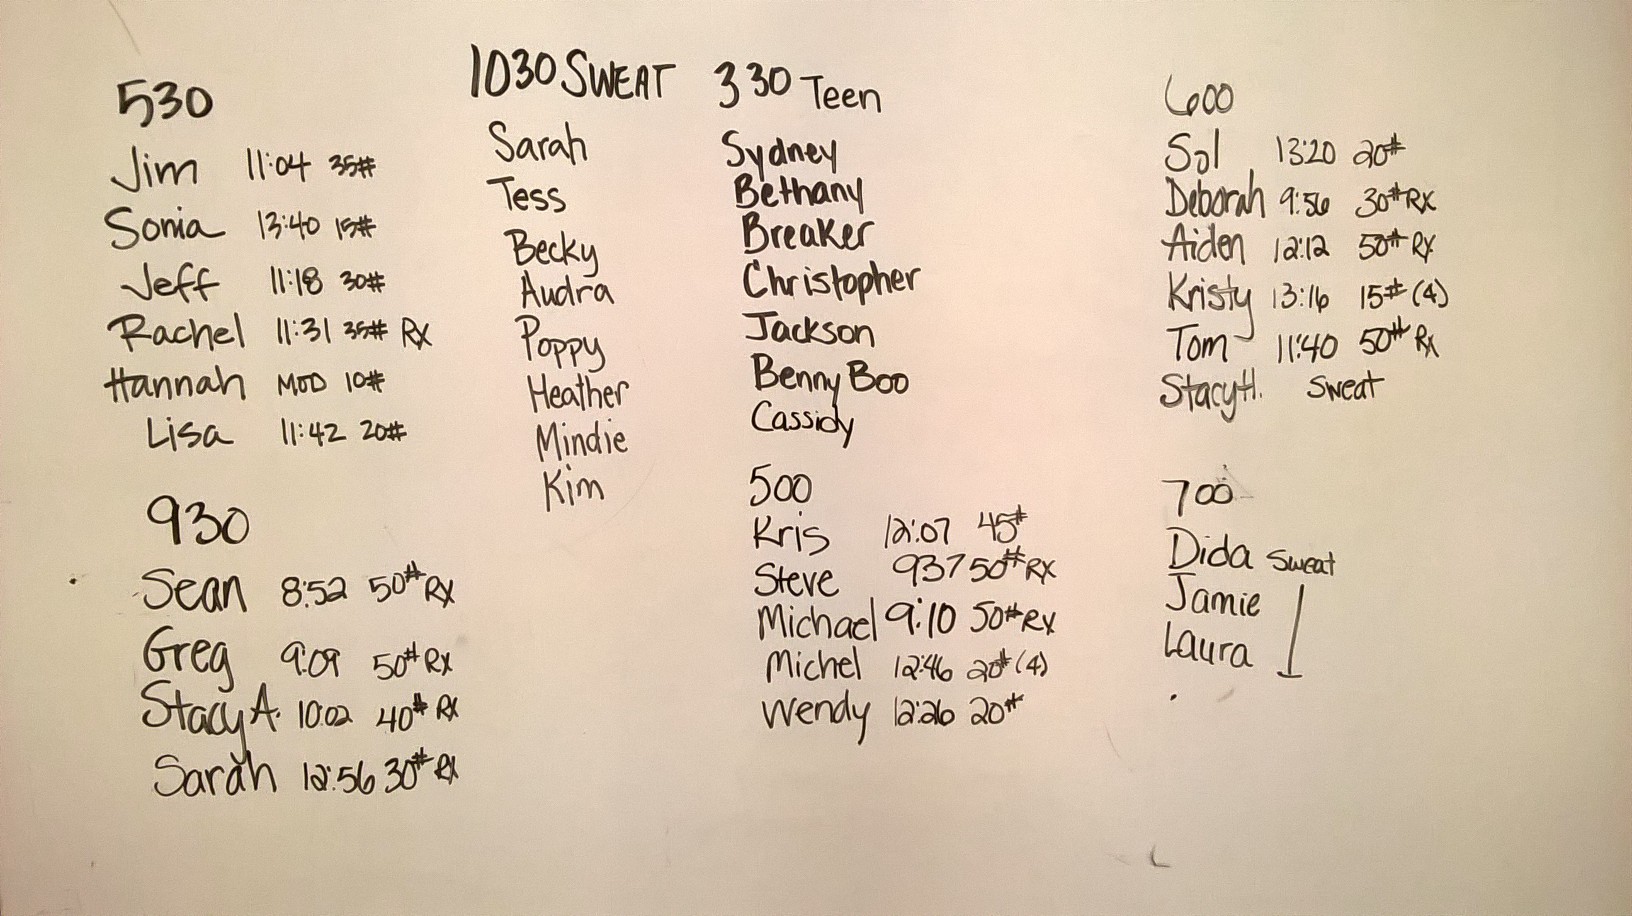 530
Jim 11:04 35#
Sonia 13:40 15#
Jeff 11:18 30#
Rachel 11:31 35# RX
Hannah MOD 10#
Lisa 11:42 20#
930
Sean 8:52 50# RX
Greg 9:09 50# RX
Stacy A. 10:02 40# RX
Sarah 12:56 30# RX
1030 SWEAT
Sarah
Tess
Becky
Audra
Poppy
Heather
Mindie
Kim
330 Teen
Sydney
Bethany
Breaker
Christopher
Jackson
Benny Boo
Cassidy
500
Kris 12:07 45#
Steve 937 50# RX
Michael 9:10 50# RX
Michel 12:46 20# (4)
Wendy 12:26 20#
600
Sol 13:20 20#
Deborah 9:56 30# RX
Aiden 12:12 50# RX
Kristy 13:16 15# (4)
Tom 11:40 50# RX
Stacy H. Sweat
700
Dida Sweat
Jamie
Laura